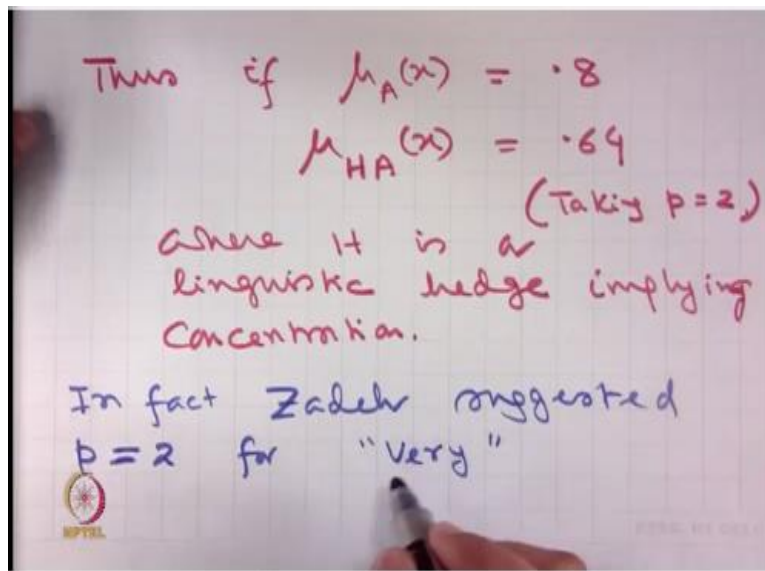 Thus if μ_A(x) = .8
μ_HA(x) = .64
(Taking p=2)
where H is a
linguistic hedge implying
Concentration.
In fact Zadeh suggested
p = 2 for "very"
NPTEL